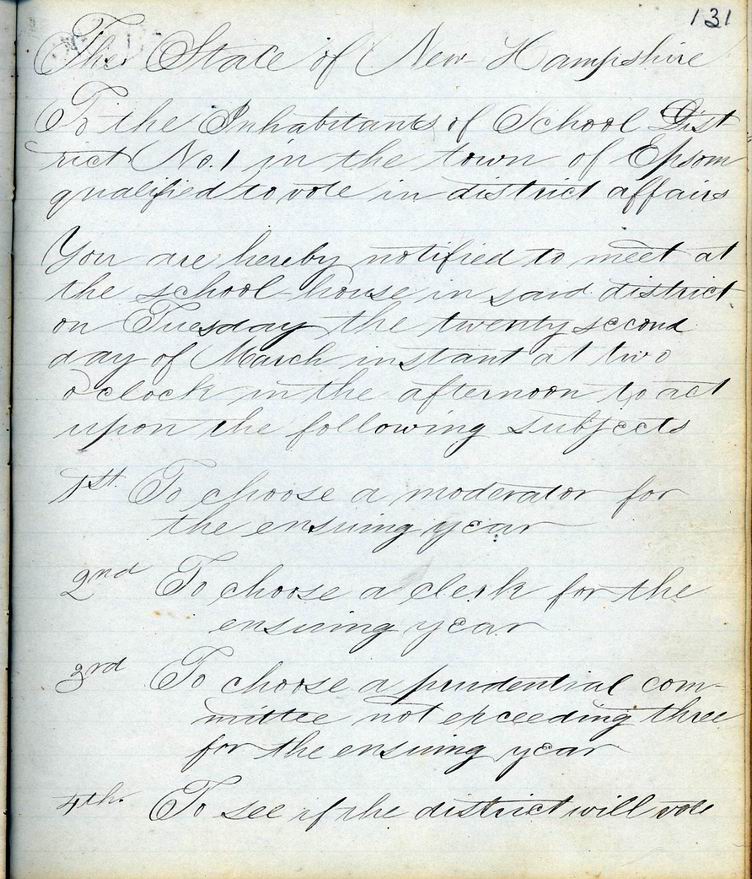 131
The State of New Hampshire
To the Inhabitants of School Dist
rict No. 1 in the town of Epsom
qualified to vote in district affairs
You are hereby notified to meet at
the school-house in said district
on Tuesday the twenty second
day of March instant at two
o'clock in the afternoon to act
upon the following subjects
1st To choose a moderator for
the ensuing year
2nd To choose a clerk for the
ensuing year
3rd To choose a prudential com-
mittee not exceeding three
for the ensuing year
4th. To see if the district will vote